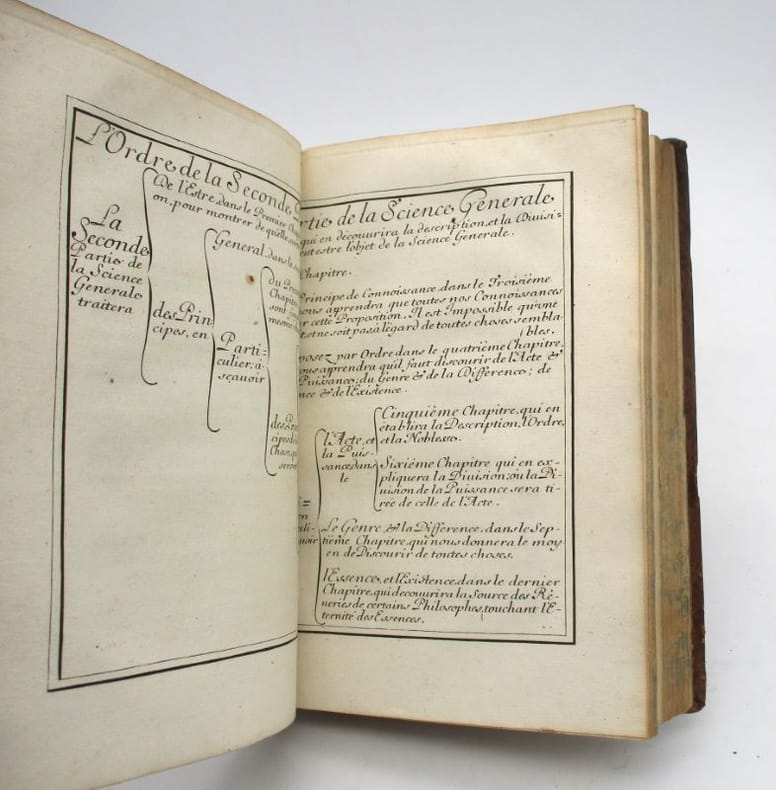 L'Ordre de la Seconde
De l'Estre, dans le Premier
on, pour montrer de quelle
La
Seconde
Partie de
la Science
Generale
traitera
General, dans le
des Prin-
cipes, en
Parti-
culier, à-
sçavoir
du
Chapitre
sont
mesme
des
cipes
Chose, qui
seront
tie de la Science Generale
qui en découvrira la description, et la Divisi-
eut estre l'objet de la Science Generale.
Chapitre.
Principe de Connoissance, dans le Troisiéme
nous apprendra que toutes nos Connoissances
r cette Proposition, Il est Impossible qu'vne
t, et ne soit pas à l'égard de toutes choses sembla-
bles.
posez par Ordre dans le quatriéme Chapitre,
ous apprendra qu'il faut discourir de l'Acte &
Puissance; du Genre & de la Difference; de
nce & de l'Existence.
l'Acte, et
la Puis-
sance, dans
le
Cinquiéme Chapitre, qui en
établira la Description, l'Ordre,
et la Noblesse.
Sixiéme Chapitre qui en ex-
pliquera la Diuision; où la Di-
uision de la Puissance sera ti-
rée de celle de l'Acte.
Le Genre, & la Difference, dans le Sep-
tiéme Chapitre, qui nous donnera le moy-
en de Discourir de toutes choses.
l'Essence, et l'Existence, dans le dernier
Chapitre, qui decouurira la Source des Rê-
ueries de certains Philosophes, touchant l'E-
ternité des Essences.